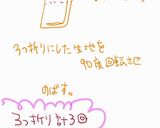 3つ折りにした生地を
90度回転させ
のばす。
3つ折り計3回